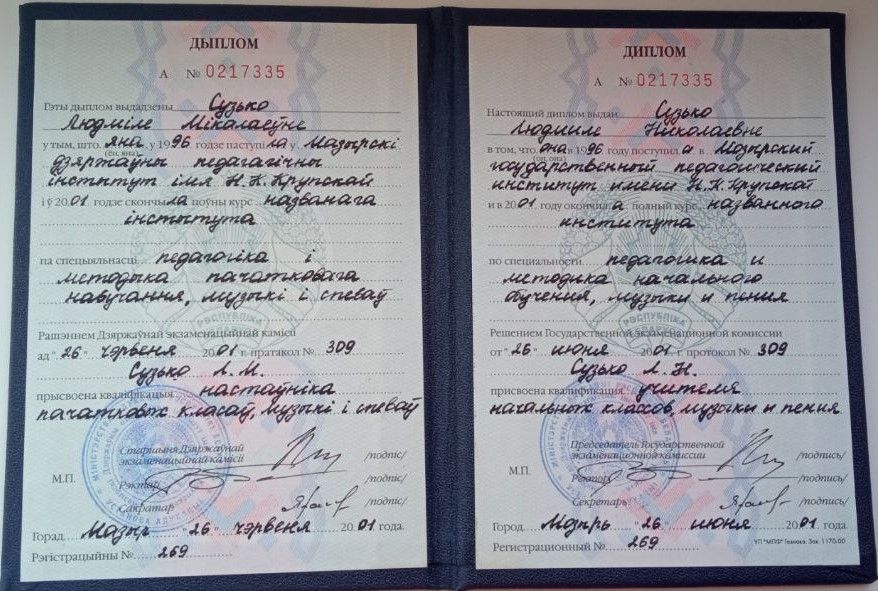 ДЫПЛОМ
А № 0217335
Гэты дыплом выдадзены Сузько
Людміле Мікалаеўне
у тым, што яна у 1996 годзе паступіла у Мазырскі
(ён, яна)
дзяржаўны педагагічны
інстытут імя Н.К.Крупскай
і ў 2001 годзе скончыла поўны курс названага
інстытута
па спецыяльнасці педагогіка і
методыка пачатковага
навучання, музыкі і спеваў
РЭСПУБЛІКА
Рашэннем Дзяржаўнай экзаменацыйнай камісіі
ад "26" чэрвеня 2001 г. пратакол № 309
Сузько Л.М.
прысвоена кваліфікацыя настаўніка
пачатковых класаў, музыкі і спеваў
Старшыня Дзяржаўнай
экзаменацыйнай камісіі /подпіс/
М.П.
Рэктар /подпіс/
Сакратар /подпіс/
Горад Мазыр "26" чэрвеня 2001 года.
Рэгістрацыйны № 269
ДИПЛОМ
А № 0217335
Настоящий диплом выдан Сузько
Людмиле Николаевне
в том, что она в 1996 году поступила в Мозырский
(он, она)
государственный педагогический
институт имени Н.К.Крупской
и в 2001 году окончила полный курс названного
института
по специальности педагогика и
методика начального
обучения, музыки и пения
РЭСПУБЛІКА
Решением Государственной экзаменационной комиссии
от "26" июня 2001 г. протокол № 309
Сузько Л.Н.
присвоена квалификация учителя
начальных классов, музыки и пения
Председатель Государственной
экзаменационной комиссии /подпись/
М.П.
Ректор /подпись/
Секретарь /подпись/
Город Мозырь "26" июня 2001 года.
Регистрационный № 269